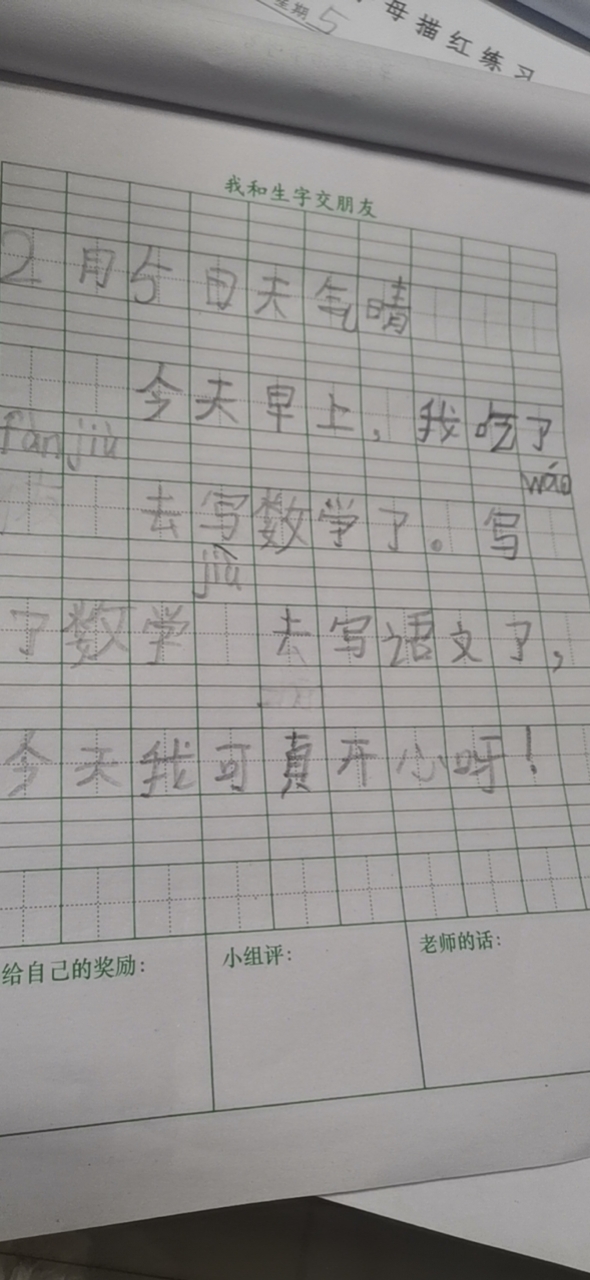 星期 5
母描红练习
我和生字交朋友
2月5日天气晴
今天早上,我吃了
fàn jiù
wáo
去写数学了。写
jiù
了数学 去写语文了,
今天我可真开心呀!
给自己的奖励:
小组评:
老师的话: